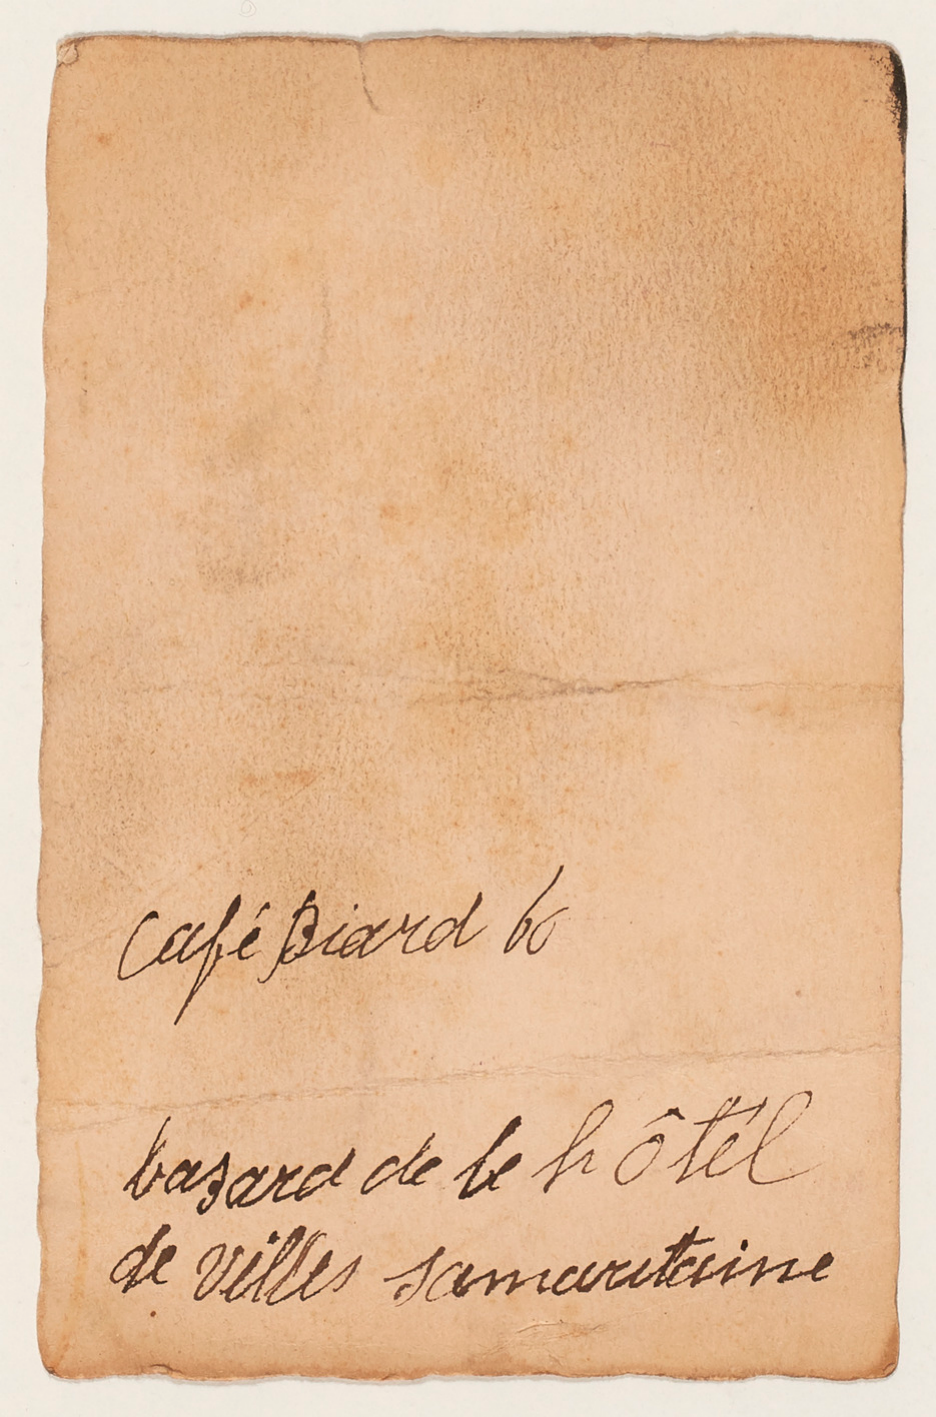 Café Biard 60
bazard de le hôtel
de villes samaritaine